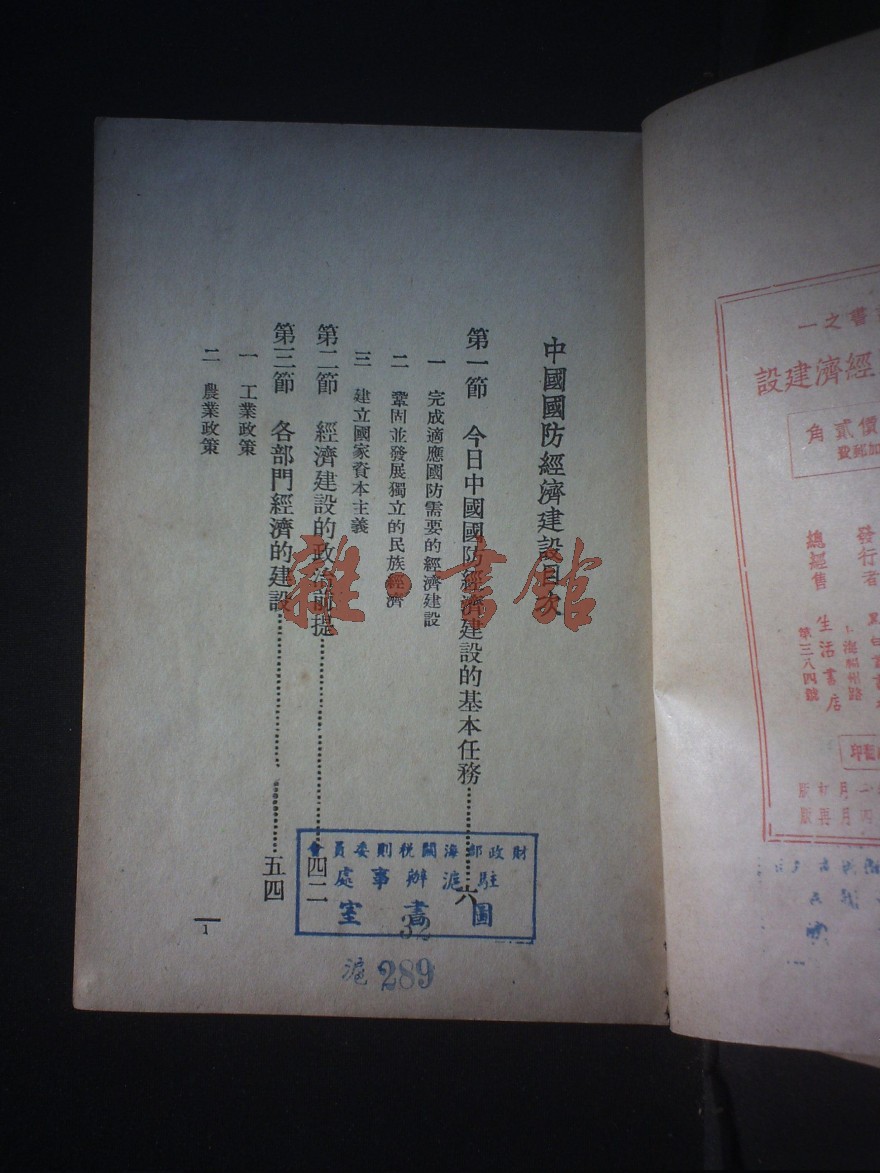 中國國防經濟建設目次
第一節　今日中國國防經濟建設的基本任務……六
一　完成適應國防需要的經濟建設
二　鞏固並發展獨立的民族經濟
三　建立國家資本主義
第二節　經濟建設的政治前提……四二
第三節　各部門經濟的建設……五四
一　工業政策
二　農業政策
1
雜·書館
財政部海關稅則委員會
駐滬辦事處
圖書室
32
滬 289
書之一
經濟建設
價貳角
加郵費
發行者
上海福州路
總經售　生活書店
第三八四號